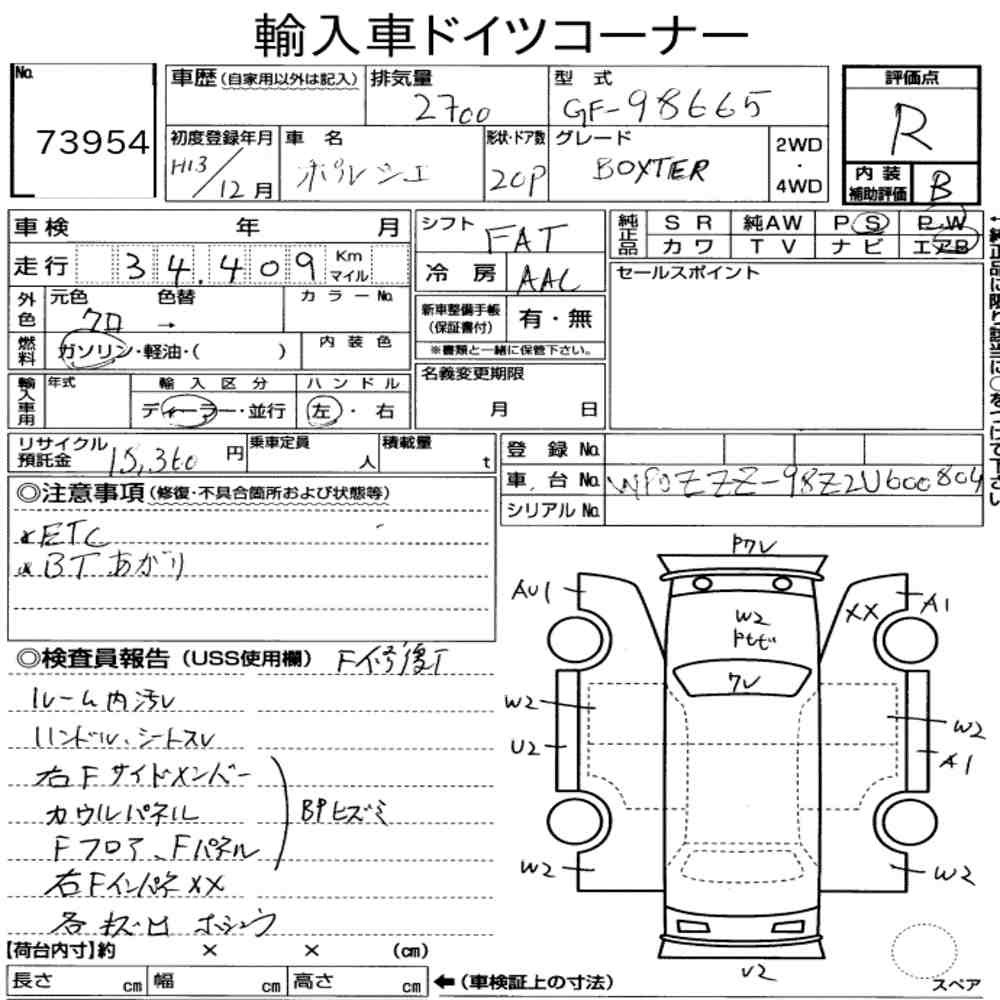 輸入車ドイツコーナー
No.
73954
車歴(自家用以外は記入)
排気量
2700
型 式
GF-98665
評価点
R
初度登録年月
H13/12月
車 名
ポルシェ
形状・ドア数
2CP
グレード
BOXTER
2WD
・
4WD
内 装
補助評価
B
車検 年 月
走行 34,409 Km
マイル
シフト
FAT
冷 房
AAC
純正品
S R 純AW P S P.W
カ ワ T V ナ ビ エアB
←純正品に限り該当に○をつけて下さい
外色
元色 色替
クロ →
カ ラ ー No.
新車整備手帳
(保証書付)
有・無
※書類と一緒に保管下さい。
セールスポイント
燃料
ガソリン・軽油・( )
内 装 色
輸入車用
年式
輸 入 区 分
ディーラー・並行
ハ ン ド ル
左 ・ 右
名義変更期限
月 日
リサイクル
預託金
15,360 円
乗車定員
人
積載量
t
登 録 No.
車 台 No. WP0ZZZ-98Z2U600804
シリアル No.
◎注意事項(修復・不具合箇所および状態等)
*ETC
*BTあがり
◎検査員報告(USS使用欄) F修復T
ルーム内汚レ
ハンドル、シートスレ
右Fサイドメンバー
カウルパネル
Fフロア、Fパネル
BPヒズミ
右Fインパネ XX
各キズ凹 ホシュウ
Pワレ
AU1
A1
XX
W2
ワレ
W2
U2
W2
A1
W2
W2
U2
スペア
【荷台内寸】約 × × (cm)
長さ cm 幅 cm 高さ cm ←(車検証上の寸法)